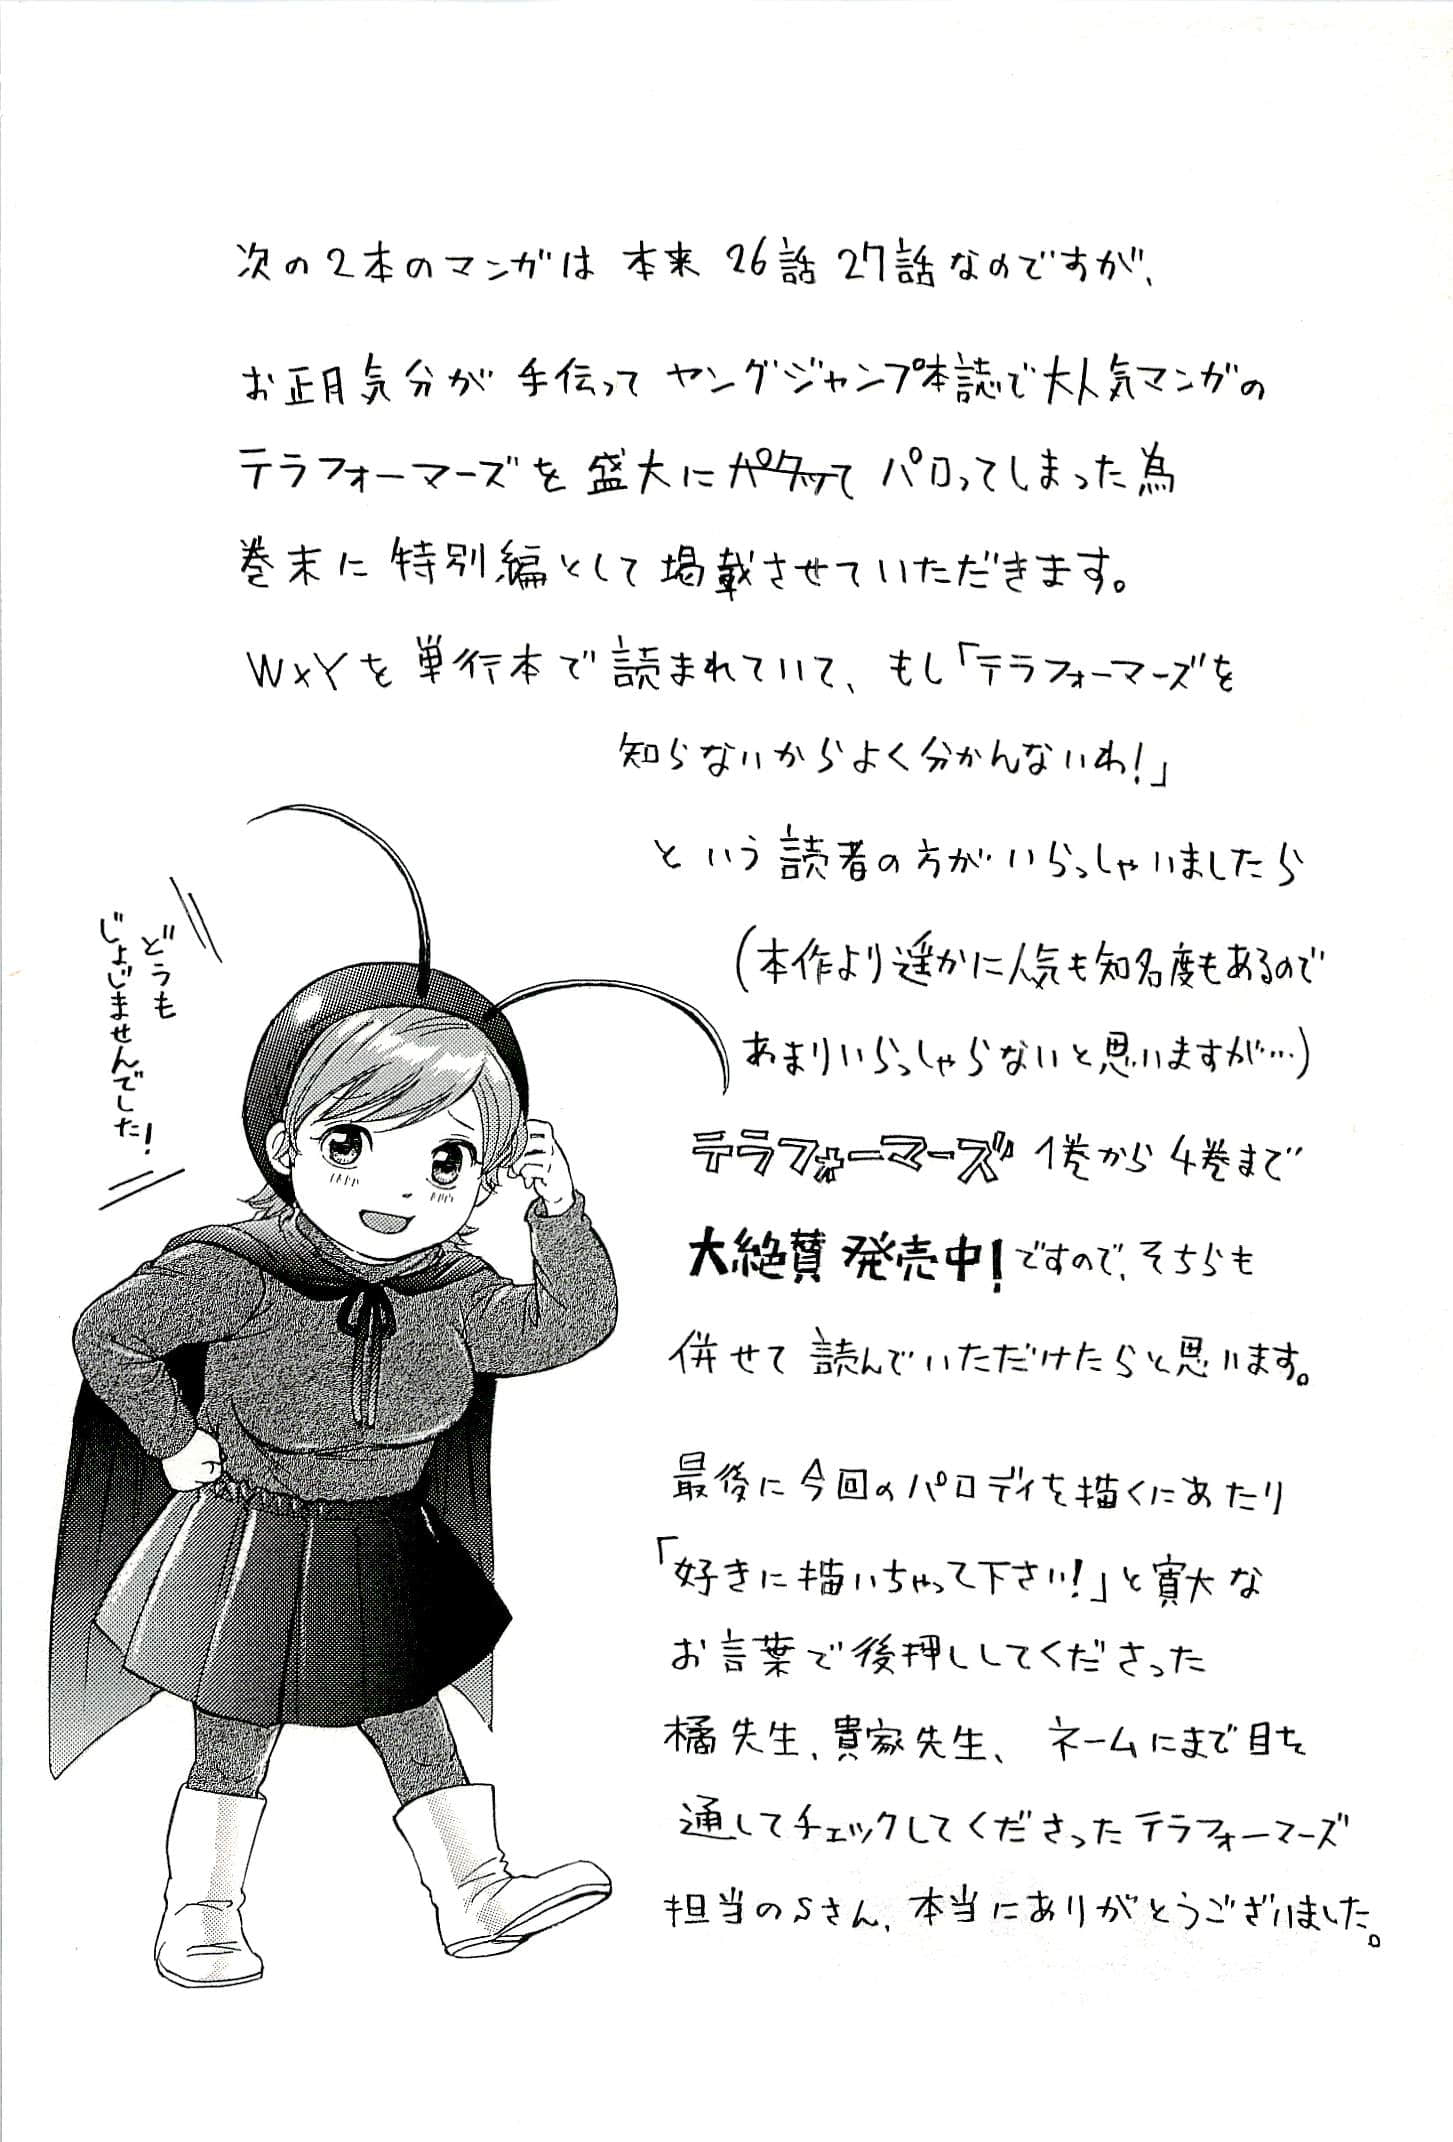 次の2本のマンガは 本来 26話 27話なのですが、
お正月気分が 手伝って ヤングジャンプ本誌で大人気マンガの
テラフォーマーズを 盛大に パクって パロってしまった為
巻末に 特別編として 掲載させていただきます。
W×Yを 単行本で 読まれていて、もし「テラフォーマーズを
知らないからよく分かんないわ!」
という 読者の方が いらっしゃいましたら
(本作より遥かに人気も知名度もあるので
あまりいらっしゃらないと思いますが…)
テラフォーマーズ 1巻から 4巻まで
大絶賛 発売中!ですので、そちらも
併せて 読んでいただけたらと思います。
最後に 今回の パロディを描くにあたり
「好きに描いちゃって下さい!」と寛大な
お言葉で後押ししてくださった
橘先生、貴家先生、ネームにまで目を
通してチェックしてくださったテラフォーマーズ
担当のSさん、本当にありがとうございました。
どうも
じょじませんでした!